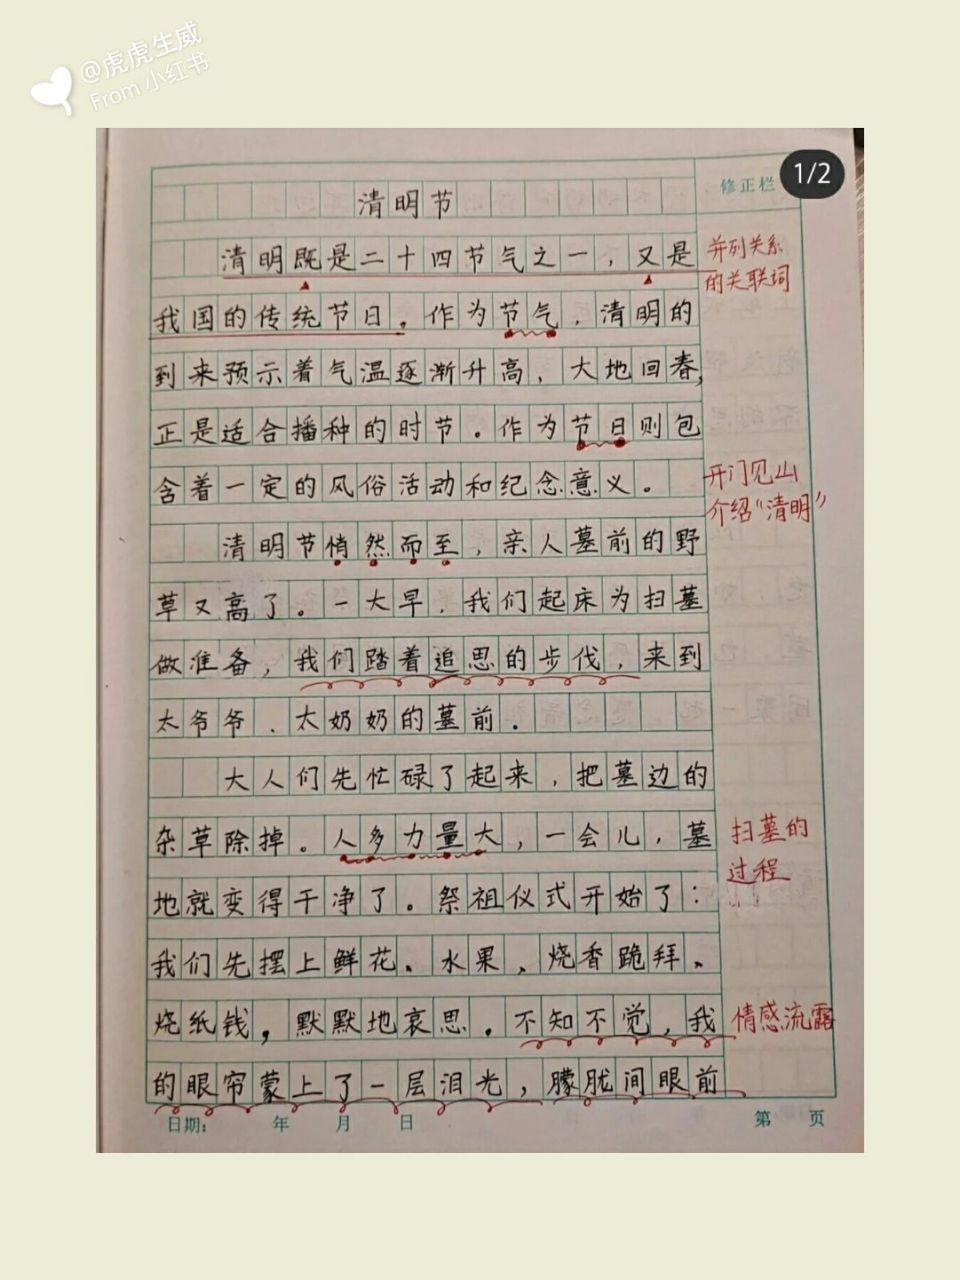 @虎虎生威
From 小红书
1/2
修正栏
清明节
清明既是二十四节气之一，又是
并列关系
的关联词
我国的传统节日。作为节气，清明的
到来预示着气温逐渐升高、大地回春，
正是适合播种的时节。作为节日则包
含着一定的风俗活动和纪念意义。
开门见山
介绍“清明”
清明节悄然而至，亲人墓前的野
草又高了。一大早，我们起床为扫墓
做准备，我们踏着追思的步伐，来到
太爷爷、太奶奶的墓前.
大人们先忙碌了起来，把墓边的
杂草除掉。人多力量大，一会儿，墓
扫墓的
过程
地就变得干净了。祭祖仪式开始了：
我们先摆上鲜花、水果、烧香跪拜、
烧纸钱，默默地哀思.不知不觉，我
情感流露
的眼帘蒙上了一层泪光，朦胧间眼前
日期： 年 月 日 第 页